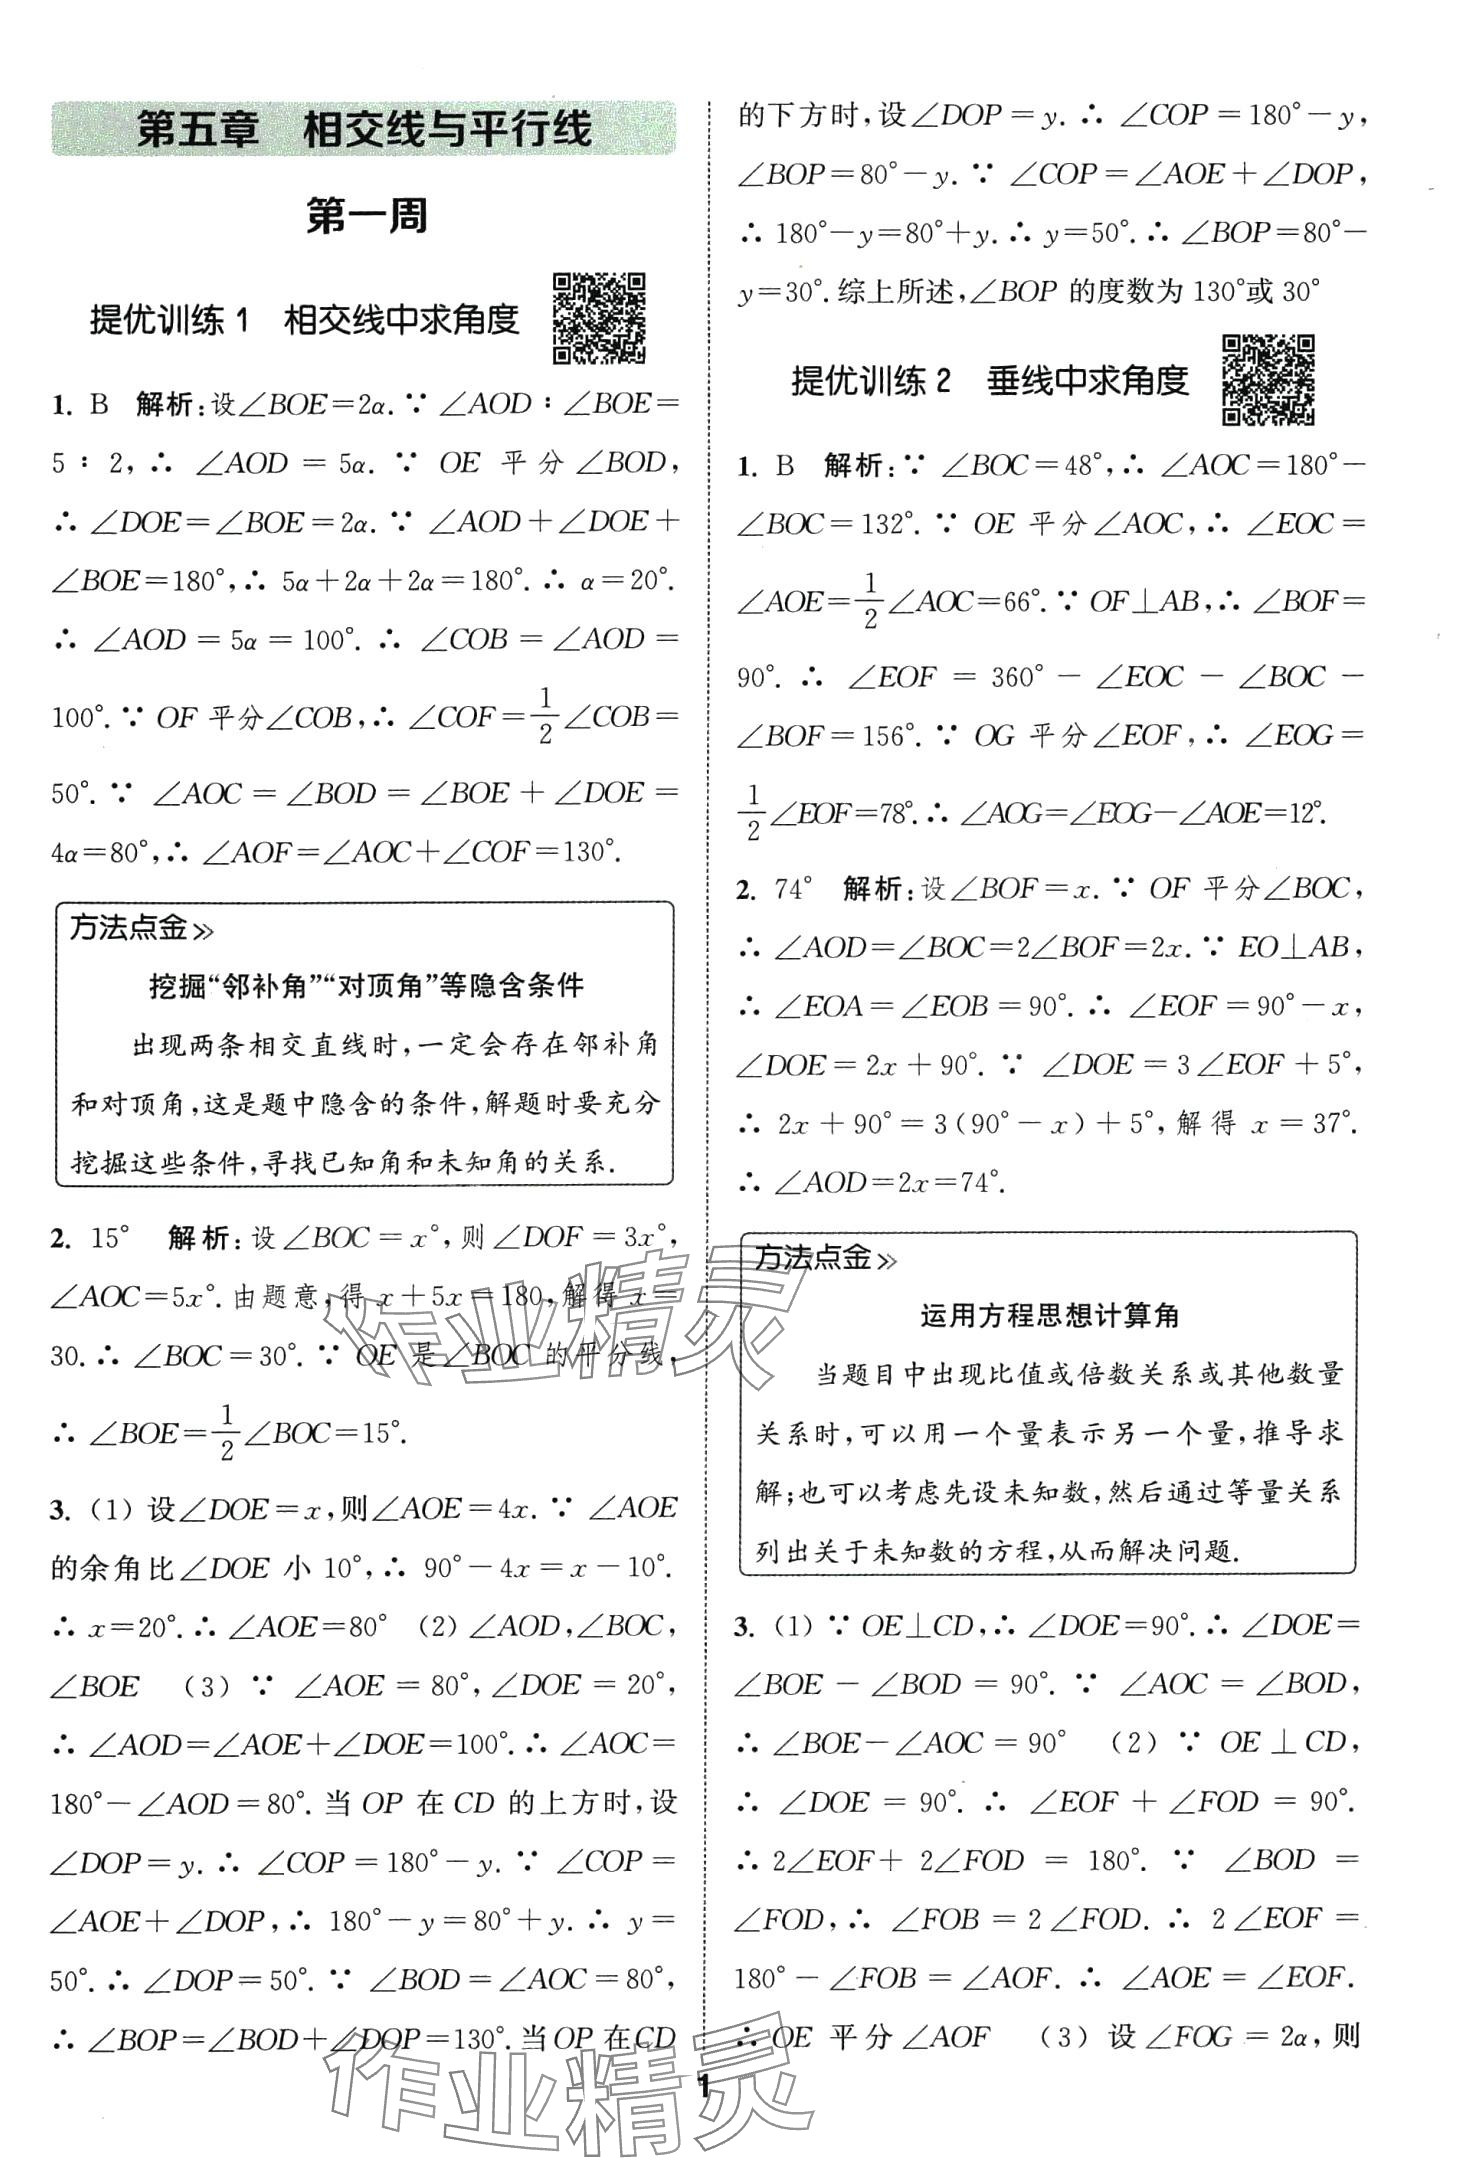 第五章 相交线与平行线
第一周
提优训练1 相交线中求角度
1. B 解析:设∠BOE=2α.∵ ∠AOD∶∠BOE=
5∶2,∴ ∠AOD=5α.∵ OE 平分∠BOD,
∴ ∠DOE=∠BOE=2α.∵ ∠AOD+∠DOE+
∠BOE=180°,∴ 5α+2α+2α=180°.∴ α=20°.
∴ ∠AOD=5α=100°.∴ ∠COB=∠AOD=
100°.∵ OF 平分∠COB,∴ ∠COF=1/2∠COB=
50°.∵ ∠AOC=∠BOD=∠BOE+∠DOE=
4α=80°,∴ ∠AOF=∠AOC+∠COF=130°.
方法点金>>
挖掘“邻补角”“对顶角”等隐含条件
出现两条相交直线时,一定会存在邻补角
和对顶角,这是题中隐含的条件,解题时要充分
挖掘这些条件,寻找已知角和未知角的关系.
2. 15° 解析:设∠BOC=x°,则∠DOF=3x°,
∠AOC=5x°.由题意,得 x+5x=180,解得 x=
30.∴ ∠BOC=30°.∵ OE 是∠BOC 的平分线,
∴ ∠BOE=1/2∠BOC=15°.
3.(1)设∠DOE=x,则∠AOE=4x.∵ ∠AOE
的余角比∠DOE 小 10°,∴ 90°-4x=x-10°.
∴ x=20°.∴ ∠AOE=80° (2)∠AOD,∠BOC,
∠BOE (3)∵ ∠AOE=80°,∠DOE=20°,
∴ ∠AOD=∠AOE+∠DOE=100°.∴ ∠AOC=
180°-∠AOD=80°.当 OP 在 CD 的上方时,设
∠DOP=y.∴ ∠COP=180°-y.∵ ∠COP=
∠AOE+∠DOP,∴ 180°-y=80°+y.∴ y=
50°.∴ ∠DOP=50°.∵ ∠BOD=∠AOC=80°,
∴ ∠BOP=∠BOD+∠DOP=130°.当 OP 在 CD
的下方时,设∠DOP=y.∴ ∠COP=180°-y,
∠BOP=80°-y.∵ ∠COP=∠AOE+∠DOP,
∴ 180°-y=80°+y.∴ y=50°.∴ ∠BOP=80°-
y=30°.综上所述,∠BOP 的度数为 130°或 30°
提优训练2 垂线中求角度
1. B 解析:∵ ∠BOC=48°,∴ ∠AOC=180°-
∠BOC=132°.∵ OE 平分∠AOC,∴ ∠EOC=
∠AOE=1/2∠AOC=66°.∵ OF⊥AB,∴ ∠BOF=
90°.∴ ∠EOF=360°-∠EOC-∠BOC-
∠BOF=156°.∵ OG 平分∠EOF,∴ ∠EOG=
1/2∠EOF=78°.∴ ∠AOG=∠EOG-∠AOE=12°.
2. 74° 解析:设∠BOF=x.∵ OF 平分∠BOC,
∴ ∠AOD=∠BOC=2∠BOF=2x.∵ EO⊥AB,
∴ ∠EOA=∠EOB=90°.∴ ∠EOF=90°-x,
∠DOE=2x+90°.∵ ∠DOE=3∠EOF+5°,
∴ 2x+90°=3(90°-x)+5°,解得 x=37°.
∴ ∠AOD=2x=74°.
方法点金>>
运用方程思想计算角
当题目中出现比值或倍数关系或其他数量
关系时,可以用一个量表示另一个量,推导求
解;也可以考虑先设未知数,然后通过等量关系
列出关于未知数的方程,从而解决问题.
3.(1)∵ OE⊥CD,∴ ∠DOE=90°.∴ ∠DOE=
∠BOE-∠BOD=90°.∵ ∠AOC=∠BOD,
∴ ∠BOE-∠AOC=90° (2)∵ OE⊥CD,
∴ ∠DOE=90°.∴ ∠EOF+∠FOD=90°.
∴ 2∠EOF+2∠FOD=180°.∵ ∠BOD=
∠FOD,∴ ∠FOB=2∠FOD.∴ 2∠EOF=
180°-∠FOB=∠AOF.∴ ∠AOE=∠EOF.
∴ OE 平分∠AOF (3)设∠FOG=2α,则
1
作业精灵
作业精灵